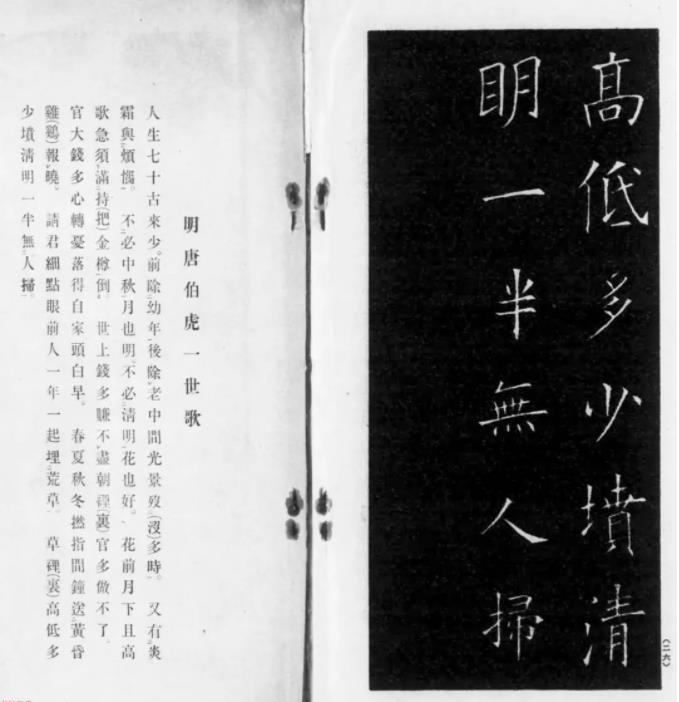 高低多少墳清
眀一半無人掃
(二六)
明唐伯虎一世歌
人生七十古來少。前除幼年,後除老中間光景歿(沒)多時。又有炎
霜與煩惱。不必中秋月也明。不必清明花也好。花前月下且高
歌急須滿持(把)金樽倒。世上錢多賺不盡朝裡(裏)官多做不了。
官大錢多心轉憂落得自家頭白早。春夏秋冬撚指間鐘送黃昏
雞(鷄)報曉。請君細點眼前人一年一起埋荒草。草裡(裏)高低多
少墳清明一半無人掃。